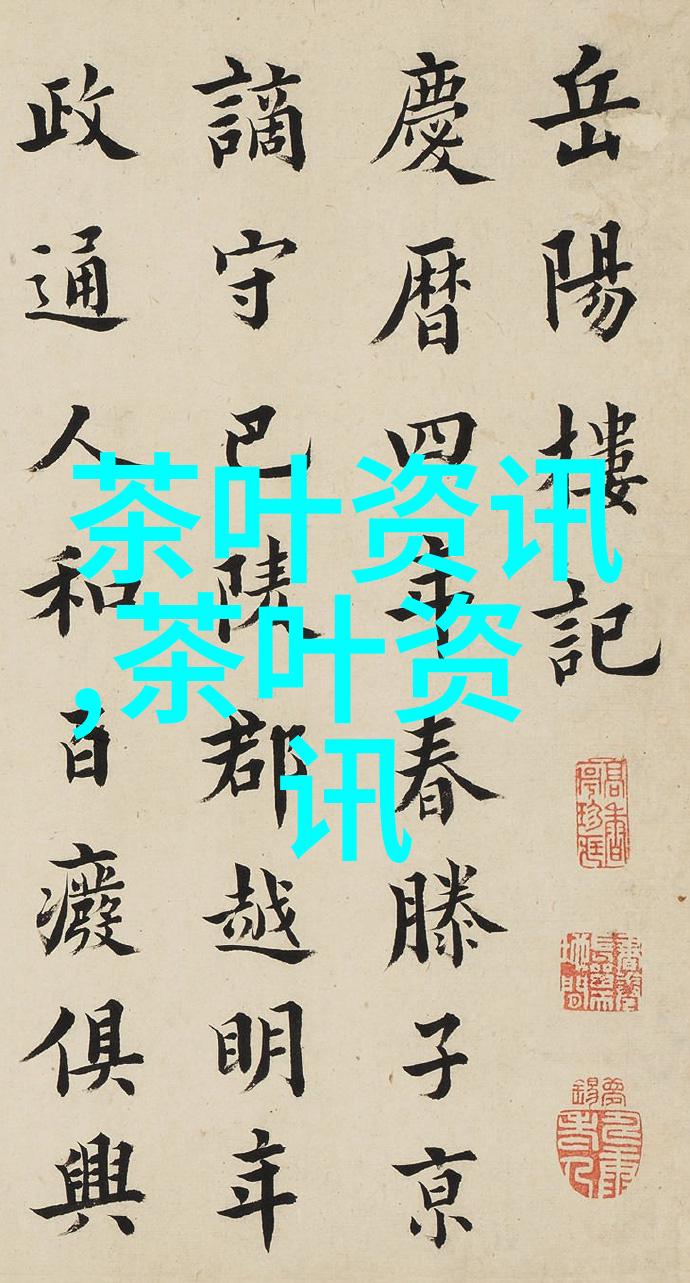 岳陽樓記
慶曆四年春滕子京
謫守巴陵郡越明年
政通人和百癈俱興
茶叶资讯
,茶叶资
讯